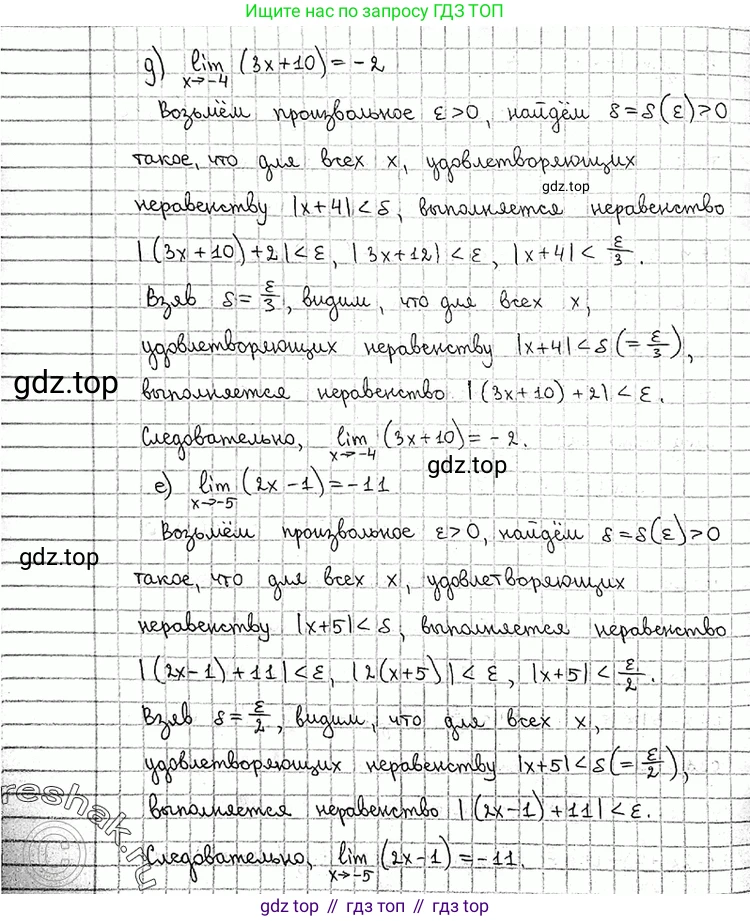 Ищите нас по запросу ГДЗ ТОП
д) lim x→-4 (3x+10) = -2
Возьмём произвольное ε>0, найдём δ=δ(ε)>0
такое, что для всех x, удовлетворяющих
gdz.top
неравенству |x+4|<δ, выполняется неравенство
|(3x+10)+2|<ε, |3x+12|<ε, |x+4|<ε/3.
Взяв δ=ε/3, видим, что для всех x,
удовлетворяющих неравенству |x+4|<δ(=ε/3),
gdz.top
выполняется неравенство |(3x+10)+2|<ε.
Следовательно, lim x→-4 (3x+10)=-2.
gdz.top
е) lim x→-5 (2x-1)=-11
Возьмём произвольное ε>0, найдём δ=δ(ε)>0
gdz.top
такое, что для всех x, удовлетворяющих
неравенству |x+5|<δ, выполняется неравенство
|(2x-1)+11|<ε, |2(x+5)|<ε, |x+5|<ε/2.
Взяв δ=ε/2, видим, что для всех x,
удовлетворяющих неравенству |x+5|<δ(=ε/2),
выполняется неравенство |(2x-1)+11|<ε.
reshak.ru
Следовательно, lim x→-5 (2x-1)=-11.
gdz.top // гдз.топ // gdz.top